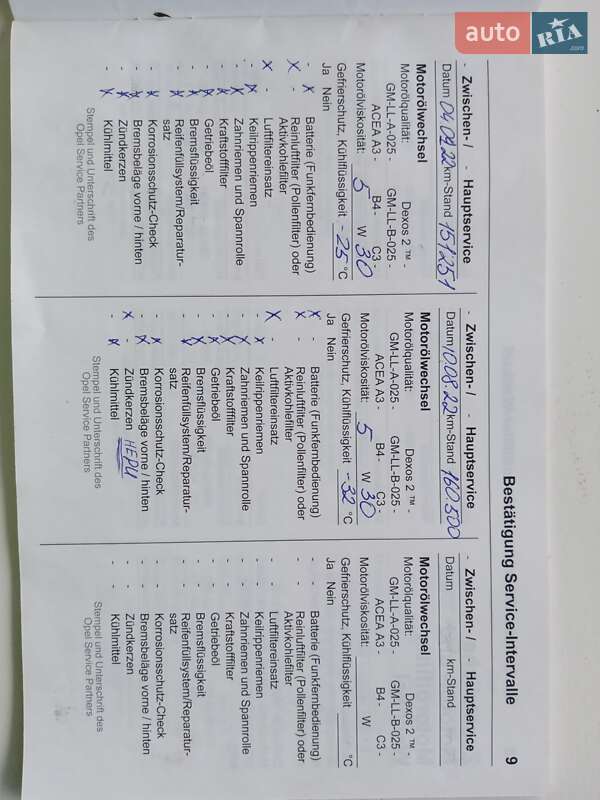 auto RIA.com
Bestätigung Service-Intervalle 9
- Zwischen- / - Hauptservice
Datum 04.02.22 km-Stand 151251
Motorölwechsel
Motorölqualität: Dexos 2 ™ -
GM-LL-A-025 - GM-LL-B-025 -
ACEA A3 - B4 - C3 -
Motorölviskosität: 5 W 30
Gefrierschutz, Kühlflüssigkeit -25 °C
Ja Nein
- X Batterie (Funkfernbedienung)
X - Reinluftfilter (Pollenfilter) oder
Aktivkohlefilter
X - Luftfiltereinsatz
- X Keilrippenriemen
- X Zahnriemen und Spannrolle
- X Kraftstofffilter
- X Getriebeöl
- X Bremsflüssigkeit
- X Reifenfüllsystem/Reparatur-
satz
- X Korrosionsschutz-Check
- X Bremsbeläge vorne / hinten
- X Zündkerzen
- X Kühlmittel
Stempel und Unterschrift des
Opel Service Partners
- Zwischen- / - Hauptservice
Datum 10.08.22 km-Stand 160500
Motorölwechsel
Motorölqualität: Dexos 2 ™ -
GM-LL-A-025 - GM-LL-B-025 -
ACEA A3 - B4 - C3 -
Motorölviskosität: 5 W 30
Gefrierschutz, Kühlflüssigkeit -32 °C
Ja Nein
X - Batterie (Funkfernbedienung)
X - Reinluftfilter (Pollenfilter) oder
Aktivkohlefilter
X - Luftfiltereinsatz
- X Keilrippenriemen
- X Zahnriemen und Spannrolle
- X Kraftstofffilter
- X Getriebeöl
- X Bremsflüssigkeit
- X Reifenfüllsystem/Reparatur-
satz
- X Korrosionsschutz-Check
- X Bremsbeläge vorne / hinten
X - Zündkerzen
- X Kühlmittel
Stempel und Unterschrift des
Opel Service Partners
- Zwischen- / - Hauptservice
Datum km-Stand
Motorölwechsel
Motorölqualität: Dexos 2 ™ -
GM-LL-A-025 - GM-LL-B-025 -
ACEA A3 - B4 - C3 -
Motorölviskosität: W
Gefrierschutz, Kühlflüssigkeit °C
Ja Nein
- - Batterie (Funkfernbedienung)
- - Reinluftfilter (Pollenfilter) oder
Aktivkohlefilter
- - Luftfiltereinsatz
- - Keilrippenriemen
- - Zahnriemen und Spannrolle
- - Kraftstofffilter
- - Getriebeöl
- - Bremsflüssigkeit
- - Reifenfüllsystem/Reparatur-
satz
- - Korrosionsschutz-Check
- - Bremsbeläge vorne / hinten
- - Zündkerzen
- - Kühlmittel
Stempel und Unterschrift des
Opel Service Partners